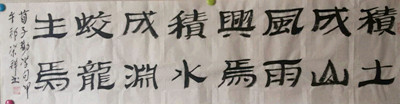 積土
成山
風雨
興焉
積水
成淵
蛟龍
生焉
荀子勸學句甲
午